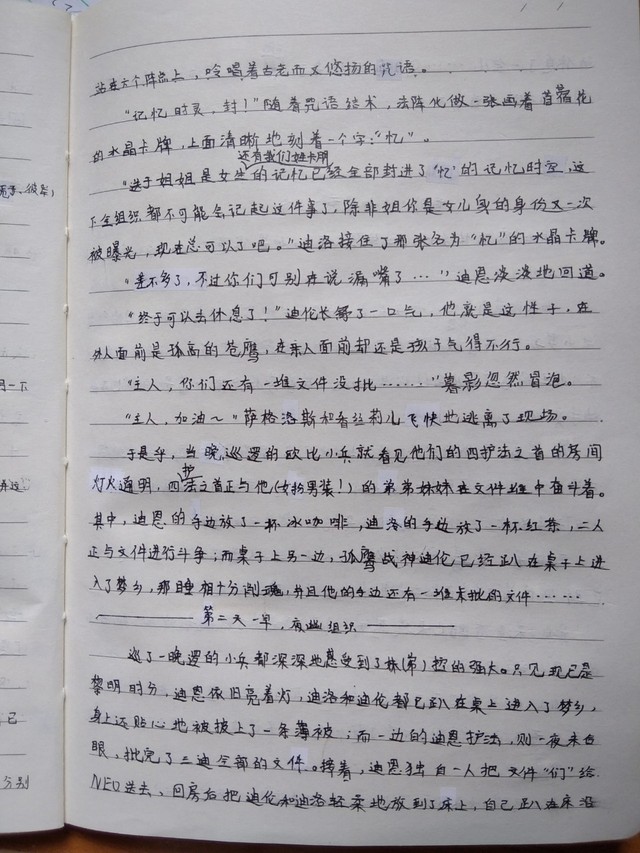 站在六个阵点上，吟唱着古老而又悠扬的咒语。
“记忆时灵，封！”随着咒语结术，法阵化做一张画着苜蓿花
的水晶卡牌，上面清晰地刻着一个字：“忆”。
还有我们姓卡朋
“迭于姐姐是女生的记忆已经全部封进了‘忆’的记忆时空，这
下全组织都不可能会记起这件事了，除非姐你是女儿身的身份又一次
被曝光，现在总可以了吧。”迪洛接住了那张名为“忆”的水晶卡牌。
“差不多了，不过你们可别在说漏嘴了……”迪恩淡淡地回道。
“终于可以去休息了！”迪伦长舒了一口气，他就是这性子，在
外人面前是孤高的苍鹰，在亲人面前却还是孩子气得不行。
“主人，你们还有一堆文件没批……”暮影忽然冒泡。
“主人，加油～”萨格洛斯和香丝莉儿飞快地逃离了现场。
于是乎，当晚，巡逻的欧比小兵就看见他们的四护法之首的房间
灯火通明，四护法之首正与他(女扮男装！)的弟弟妹妹在文件堆中奋斗着。
其中，迪恩的手边放了一杯冰咖啡，迪洛的手边放了一杯红茶，二人
正与文件进行斗争；而桌子上另一边，孤鹰战神迪伦已经趴在桌子上进
入了梦乡，那睡相十分销魂，并且他的手边还有一堆未批的文件……
第二天一早，组织
巡了一晚逻的小兵都深深地感受到了妹(弟)控的强大。只见现已是
黎明时分，迪恩依旧亮着灯，迪洛和迪伦都已趴在桌上进入了梦乡，
身上还贴心地被披上了一条薄被；而一边的迪恩护法，则一夜未合
眼，批完了三迪全部的文件。接着，迪恩独自一人把文件“们”给
NEO送去、回房后把迪伦和迪洛轻柔地放到了床上，自己趴在床沿
用一下
已
分别